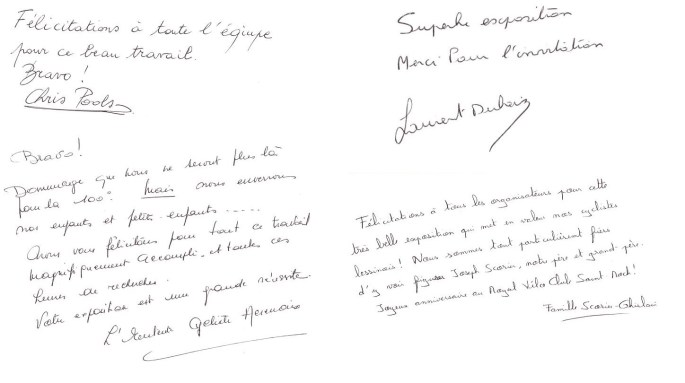 Félicitations à toute l'équipe
pour ce beau travail.
Bravo !
Chris Pools
Superbe exposition
Merci Pour l'invitation
Laurent
Bravo !
Dommage que nous ne serons plus là
pour la 100e. Mais nous enverrons
nos enfants et petits enfants.....
Alors vous félicitons pour tout ce travail
magnifiquement accompli, et toutes ces
heures de recherches.
Votre exposition est une grande réussite.
L'
Félicitations à tous les organisateurs pour cette
très belle exposition qui met en valeur nos cyclistes
lessinois ! Nous sommes tout particulièrement fiers
d'y voir figurer Joseph Scorin, notre père et grand-père.
Joyeux anniversaire au Royal Vélo Club Saint Roch !
Famille Scorin-